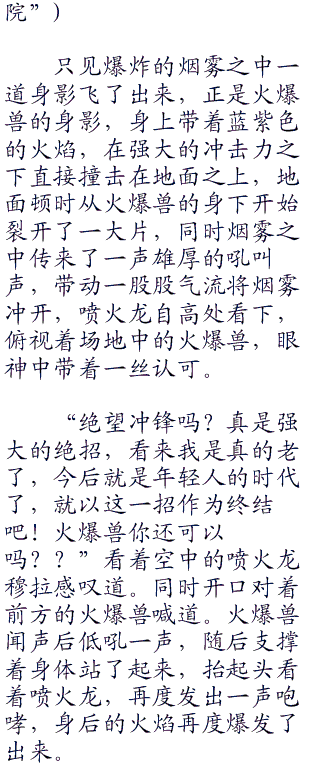 院”）
只见爆炸的烟雾之中一
道身影飞了出来，正是火爆
兽的身影，身上带着蓝紫色
的火焰，在强大的冲击力之
下直接撞击在地面之上，地
面顿时从火爆兽的身下开始
裂开了一大片，同时烟雾之
中传来了一声雄厚的吼叫
声，带动一股股气流将烟雾
冲开，喷火龙自高处看下，
俯视着场地中的火爆兽，眼
神中带着一丝认可。
“绝望冲锋吗？真是强
大的绝招，看来我是真的老
了，今后就是年轻人的时代
了，就以这一招作为终结
吧！火爆兽你还可以
吗？？”看着空中的喷火龙
穆拉感叹道。同时开口对着
前方的火爆兽喊道。火爆兽
闻声后低吼一声，随后支撑
着身体站了起来，抬起头看
着喷火龙，再度发出一声咆
哮，身后的火焰再度爆发了
出来。